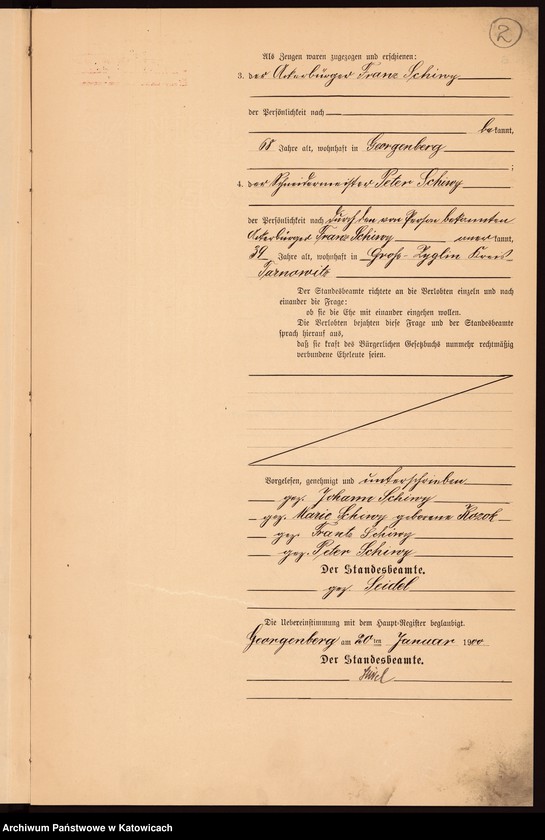 2
Als Zeugen waren zugezogen und erschienen:
3. der Ackerbürger Franz Schiwy
der Persönlichkeit nach
bekannt,
68 Jahre alt, wohnhaft in Georgenberg
;
4. der Schneidermeister Peter Schiwy
der Persönlichkeit nach durch den von Person bekannten
Ackerbürger Franz Schiwy anerkannt,
39 Jahre alt, wohnhaft in Groß-Zyglin Kreis
Tarnowitz
Der Standesbeamte richtete an die Verlobten einzeln und nach
einander die Frage:
ob sie die Ehe mit einander eingehen wollen.
Die Verlobten bejahten diese Frage und der Standesbeamte
sprach hierauf aus,
daß sie kraft des Bürgerlichen Gesetzbuchs nunmehr rechtmäßig
verbundene Eheleute seien.
Vorgelesen, genehmigt und unterschrieben
gez. Johann Schiwy
gez. Marie Schiwy geborene Kozok
gez. Frantz Schiwy
gez. Peter Schiwy
Der Standesbeamte.
gez. Seidel
Die Uebereinstimmung mit dem Haupt-Register beglaubigt.
Georgenberg am 20ten Januar 1900
Der Standesbeamte.
Seidel
Archiwum Państwowe w Katowicach